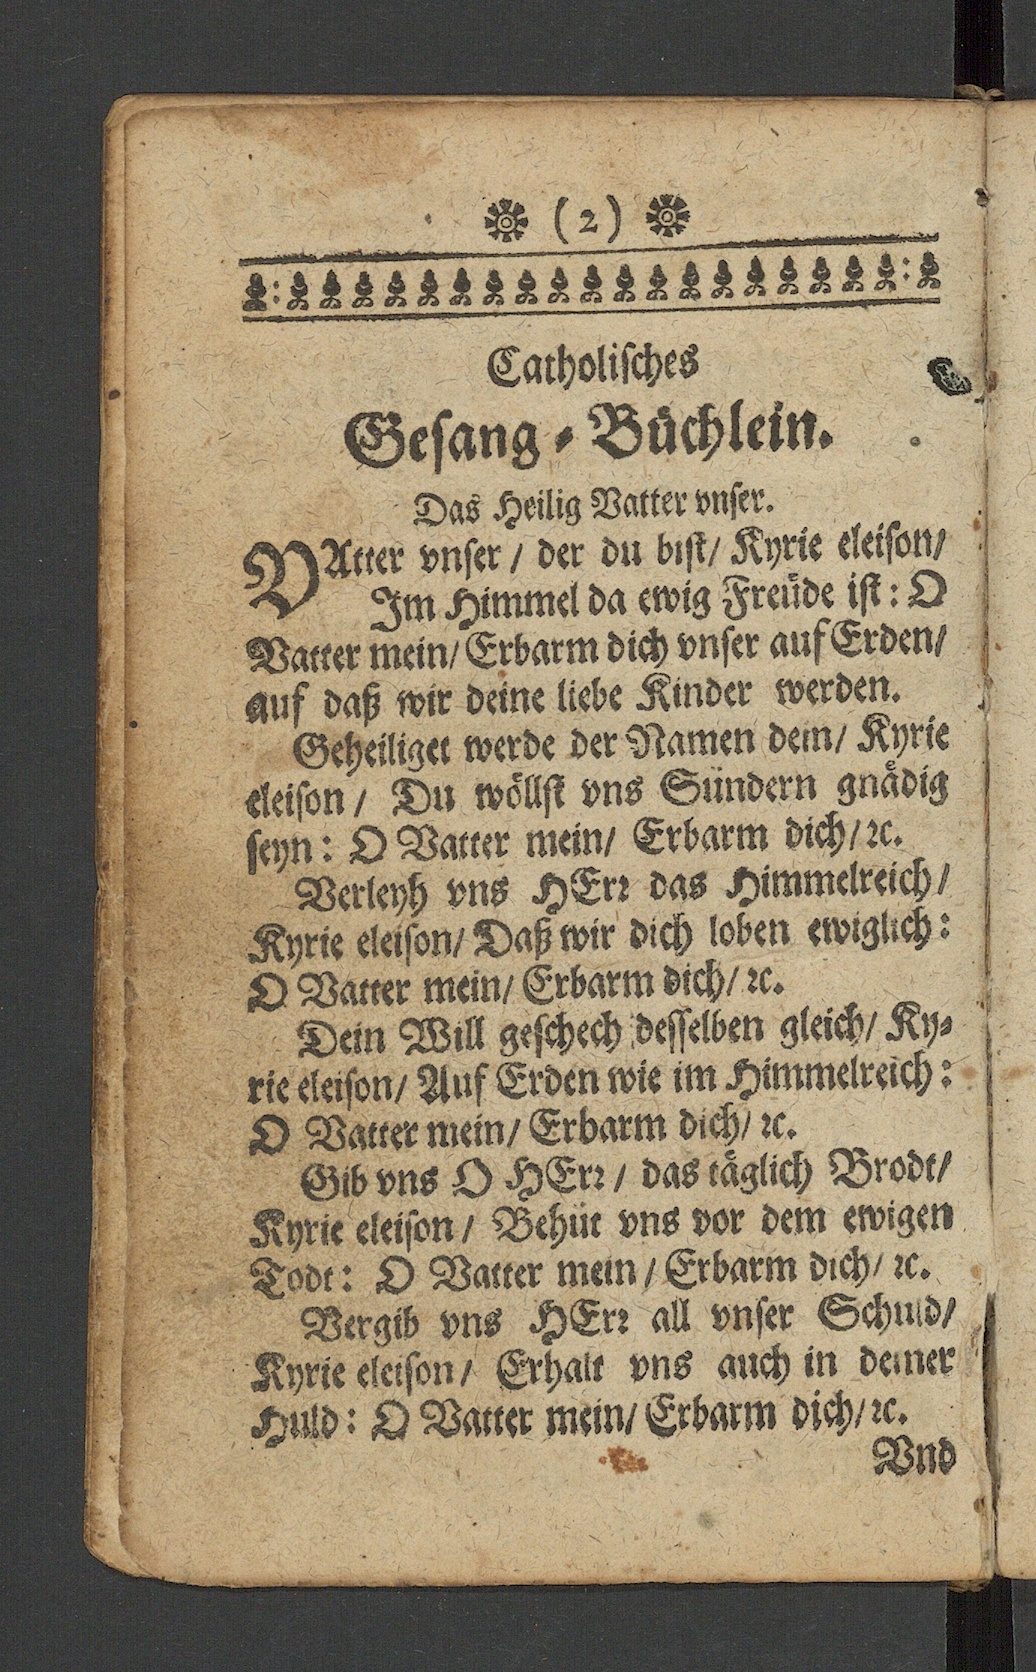 (2)
Catholisches
Gesang-Büchlein.
Das Heilig Vatter vnser.
VAtter vnser / der du bist / Kyrie eleison /
Im Himmel da ewig Freüde ist : O
Vatter mein / Erbarm dich vnser auf Erden /
auf daß wir deine liebe Kinder werden.
Geheiliget werde der Namen dein / Kyrie
eleison / Du wöllst vns Sündern gnädig
seyn : O Vatter mein / Erbarm dich / ꝛc.
Verleyh vns HErꝛ das Himmelreich /
Kyrie eleison / Daß wir dich loben ewiglich :
O Vatter mein / Erbarm dich / ꝛc.
Dein Will geschech desselben gleich / Ky-
rie eleison / Auf Erden wie im Himmelreich :
O Vatter mein / Erbarm dich / ꝛc.
Gib vns O HErꝛ / das täglich Brodt /
Kyrie eleison / Behüt vns vor dem ewigen
Todt : O Vatter mein / Erbarm dich / ꝛc.
Vergib vns HErꝛ all vnser Schuld /
Kyrie eleison / Erhalt vns auch in deiner
Huld : O Vatter mein / Erbarm dich / ꝛc.
Vnd